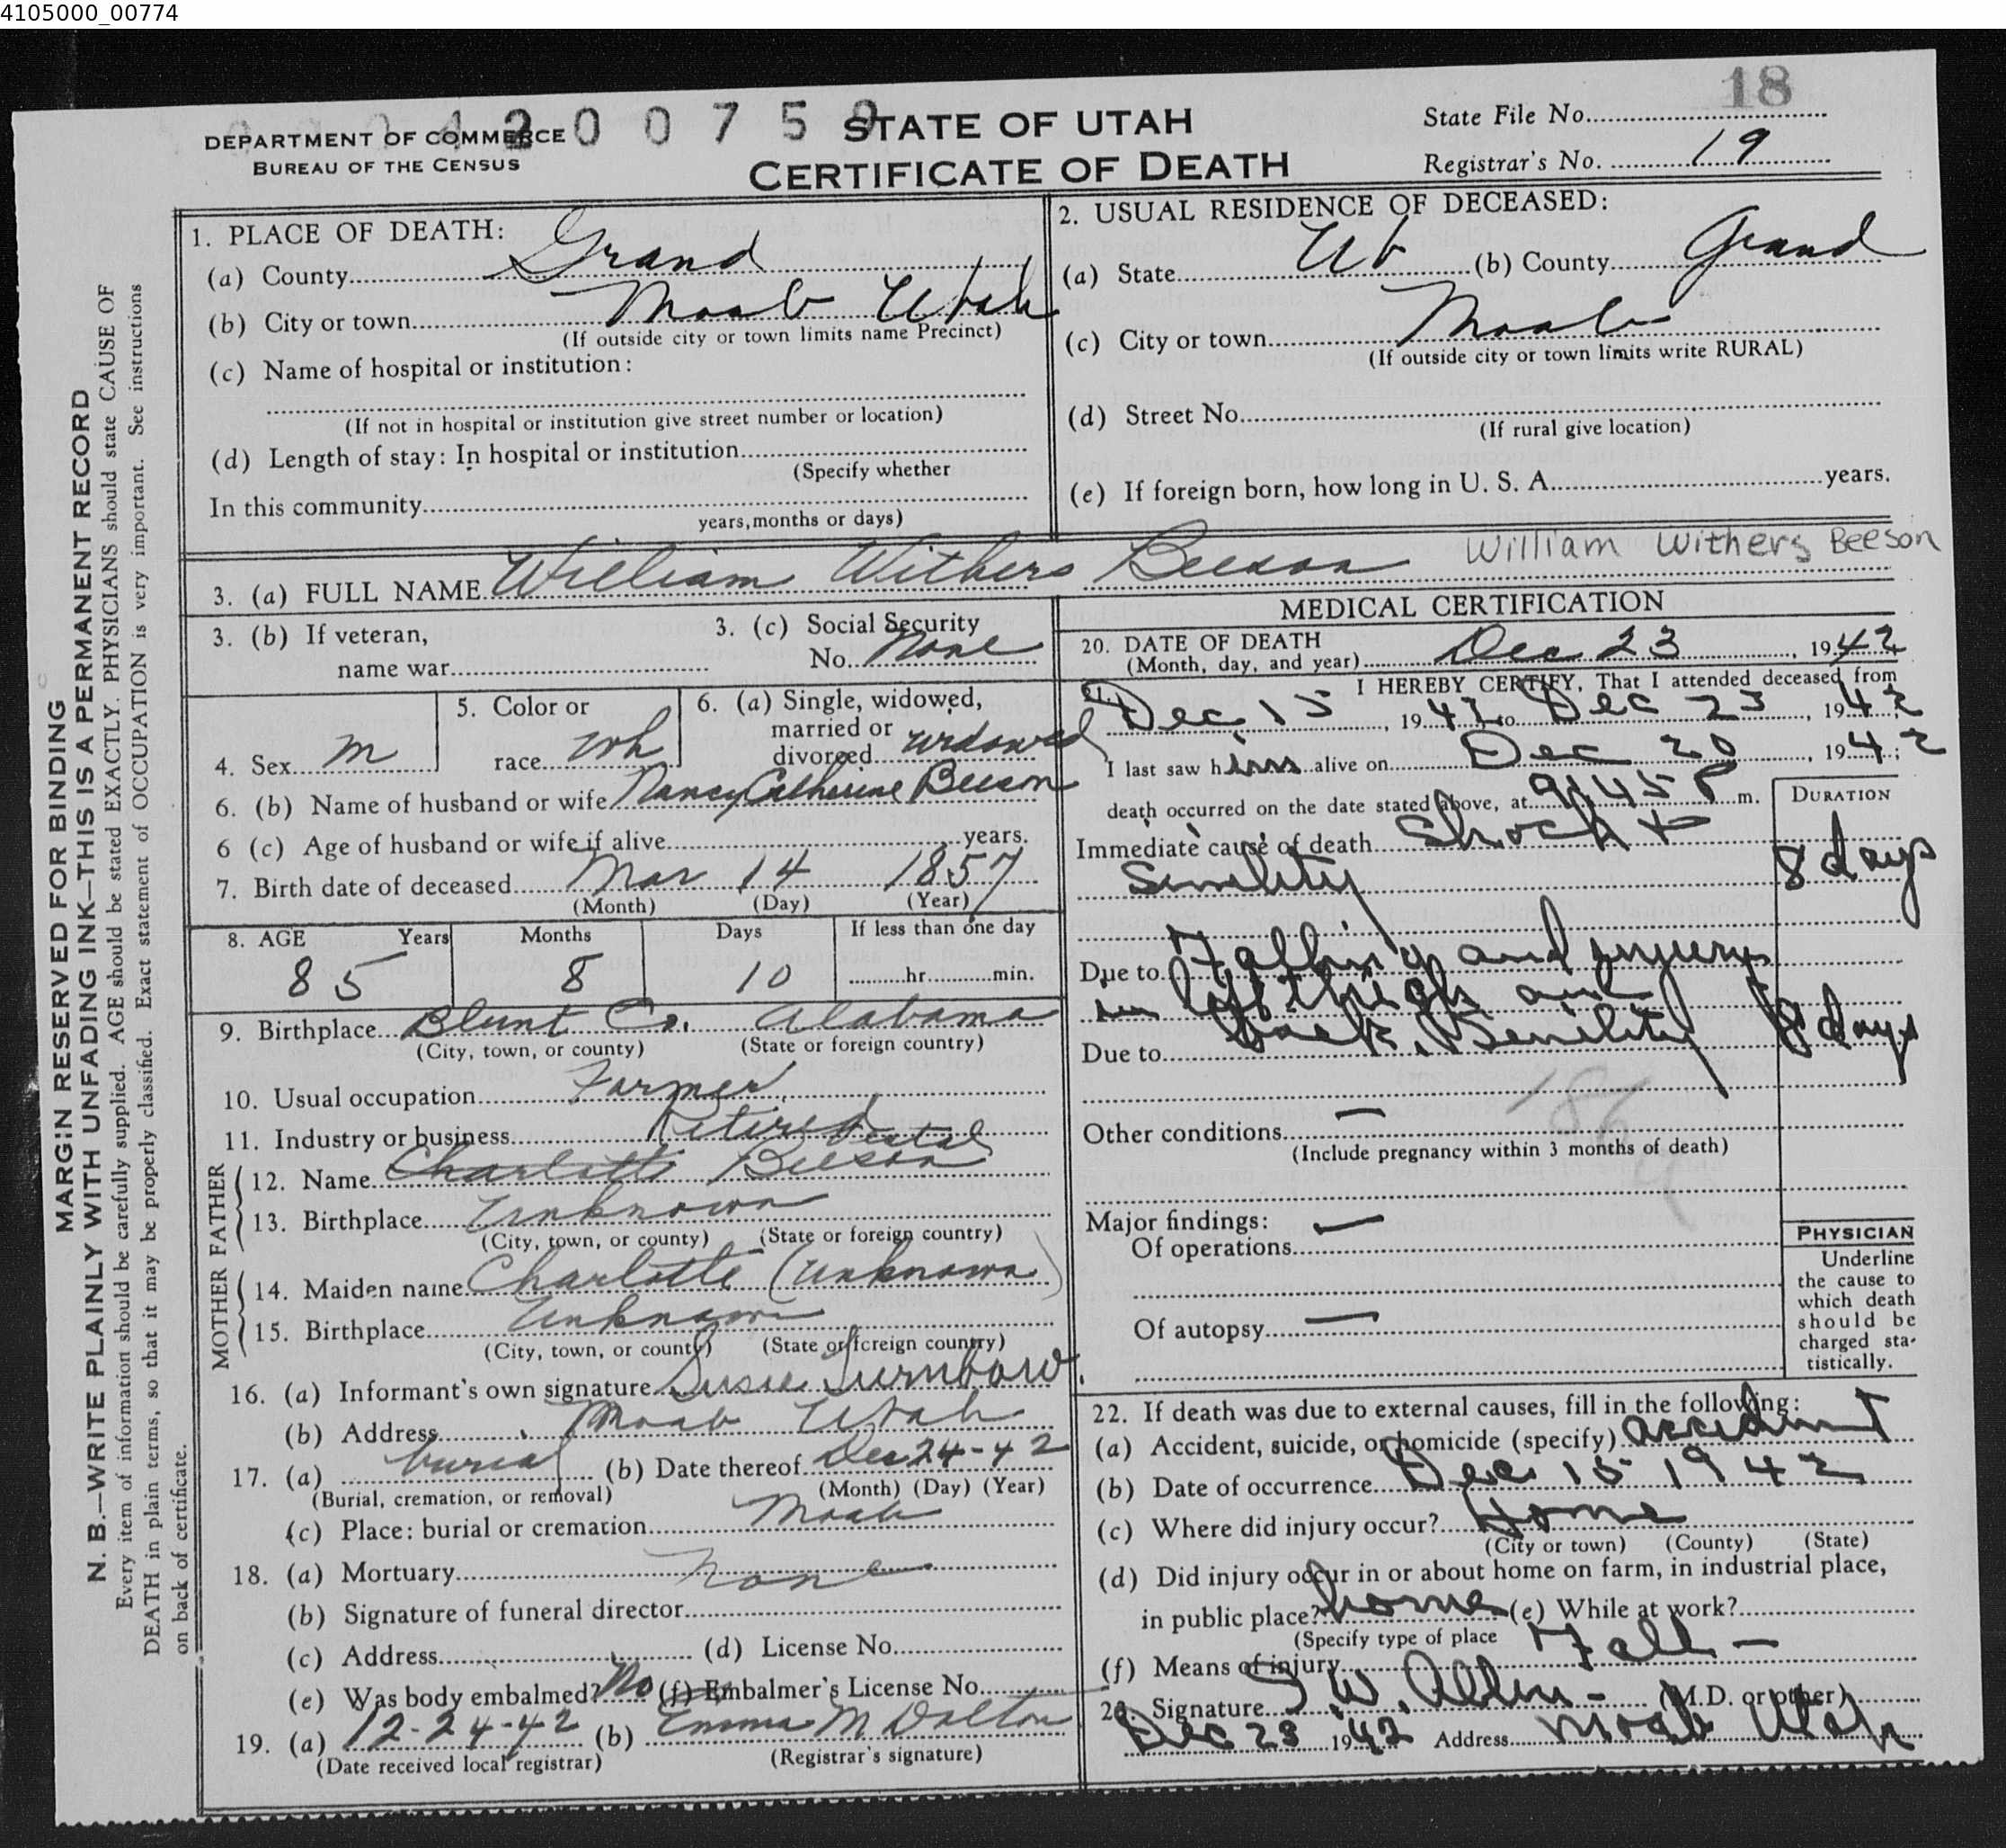 4105000_00774
18
DEPARTMENT OF COMMERCE
BUREAU OF THE CENSUS
4 2 0 0 7 5 9
STATE OF UTAH
CERTIFICATE OF DEATH
State File No.
Registrar's No. 19
1. PLACE OF DEATH:
(a) County Grand
(b) City or town Moab Utah
(If outside city or town limits name Precinct)
(c) Name of hospital or institution:
(If not in hospital or institution give street number or location)
(d) Length of stay: In hospital or institution
(Specify whether
In this community
years, months or days)
2. USUAL RESIDENCE OF DECEASED:
(a) State Ut (b) County Grand
(c) City or town Moab
(If outside city or town limits write RURAL)
(d) Street No.
(If rural give location)
(e) If foreign born, how long in U. S. A. years.
3. (a) FULL NAME William Withers Beeson William Withers Beeson
3. (b) If veteran,
name war
3. (c) Social Security
No. None
4. Sex m
5. Color or
race wh
6. (a) Single, widowed,
married or
divorced widowed
6. (b) Name of husband or wife Nancy Catherine Beeson
6 (c) Age of husband or wife if alive years.
7. Birth date of deceased Mar 14 1857
(Month) (Day) (Year)
8. AGE Years Months Days If less than one day
85 8 10 hr. min.
9. Birthplace Blunt Co. Alabama
(City, town, or county) (State or foreign country)
10. Usual occupation Farmer
11. Industry or business Retired
FATHER
12. Name Charlotte Beeson
13. Birthplace Unknown
(City, town, or county) (State or foreign country)
MOTHER
14. Maiden name Charlotte (Unknown)
15. Birthplace Unknown
(City, town, or county) (State or foreign country)
16. (a) Informant's own signature Susie Turnbow.
(b) Address Moab Utah
17. (a) burial (b) Date thereof Dec 24-42
(Burial, cremation, or removal) (Month) (Day) (Year)
(c) Place: burial or cremation Moab
18. (a) Mortuary none
(b) Signature of funeral director
(c) Address (d) License No.
(e) Was body embalmed? No (f) Embalmer's License No.
19. (a) 12-24-42 (b) Emma M Dalton
(Date received local registrar) (Registrar's signature)
MEDICAL CERTIFICATION
20. DATE OF DEATH
(Month, day, and year) Dec 23, 1942
21. I HEREBY CERTIFY, That I attended deceased from
Dec 15, 1942 to Dec 23, 1942
I last saw him alive on Dec 20, 1942;
death occurred on the date stated above, at 9:45 P m.
DURATION
Immediate cause of death Shock +
Senility 8 days
Due to Falling and injury
in left thigh and
Due to back. Senility 8 days
186
4
Other conditions —
(Include pregnancy within 3 months of death)
Major findings: —
Of operations
Of autopsy —
PHYSICIAN
Underline
the cause to
which death
should be
charged sta-
tistically.
22. If death was due to external causes, fill in the following:
(a) Accident, suicide, or homicide (specify) accident
(b) Date of occurrence Dec 15 1942
(c) Where did injury occur? Home
(City or town) (County) (State)
(d) Did injury occur in or about home on farm, in industrial place,
in public place? home (e) While at work?
(Specify type of place
(f) Means of injury Fall —
23. Signature J W. Allen - (M.D. or other)
Dec 23 1942 Address Moab Utah
MARGIN RESERVED FOR BINDING
N. B.—WRITE PLAINLY WITH UNFADING INK—THIS IS A PERMANENT RECORD
Every item of information should be carefully supplied. AGE should be stated EXACTLY. PHYSICIANS should state CAUSE OF
DEATH in plain terms, so that it may be properly classified. Exact statement of OCCUPATION is very important. See instructions
on back of certificate.